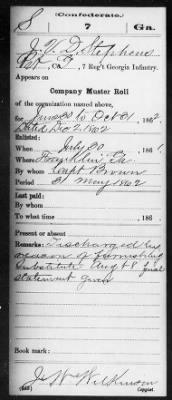 (Confederate.)
S 7 Ga.
J. V. D. Stephens
Pvt, Co. F, 7 Reg't Georgia Infantry.
Appears on
Company Muster Roll
of the organization named above,
for June 30 to Oct 31, 1862.
Dated Dec 2, 1862
Enlisted:
When July 20, 1861.
Where Franklin, Ga.
By whom Capt Brown
Period 31 May 1862
Last paid:
By whom
To what time , 186 .
Present or absent
Remarks: Discharged by
reason of furnishing
Substitute Aug 68 final
statement given
Book mark:
J W Wilkinson
(642) Copyist.